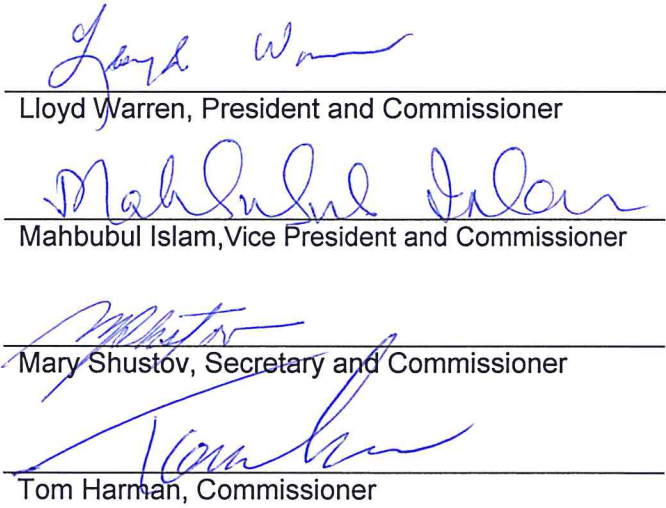 Lloyd Warren
Lloyd Warren, President and Commissioner
Mahbubul Islam
Mahbubul Islam,Vice President and Commissioner
MShustov
Mary Shustov, Secretary and Commissioner
Tom Harman, Commissioner